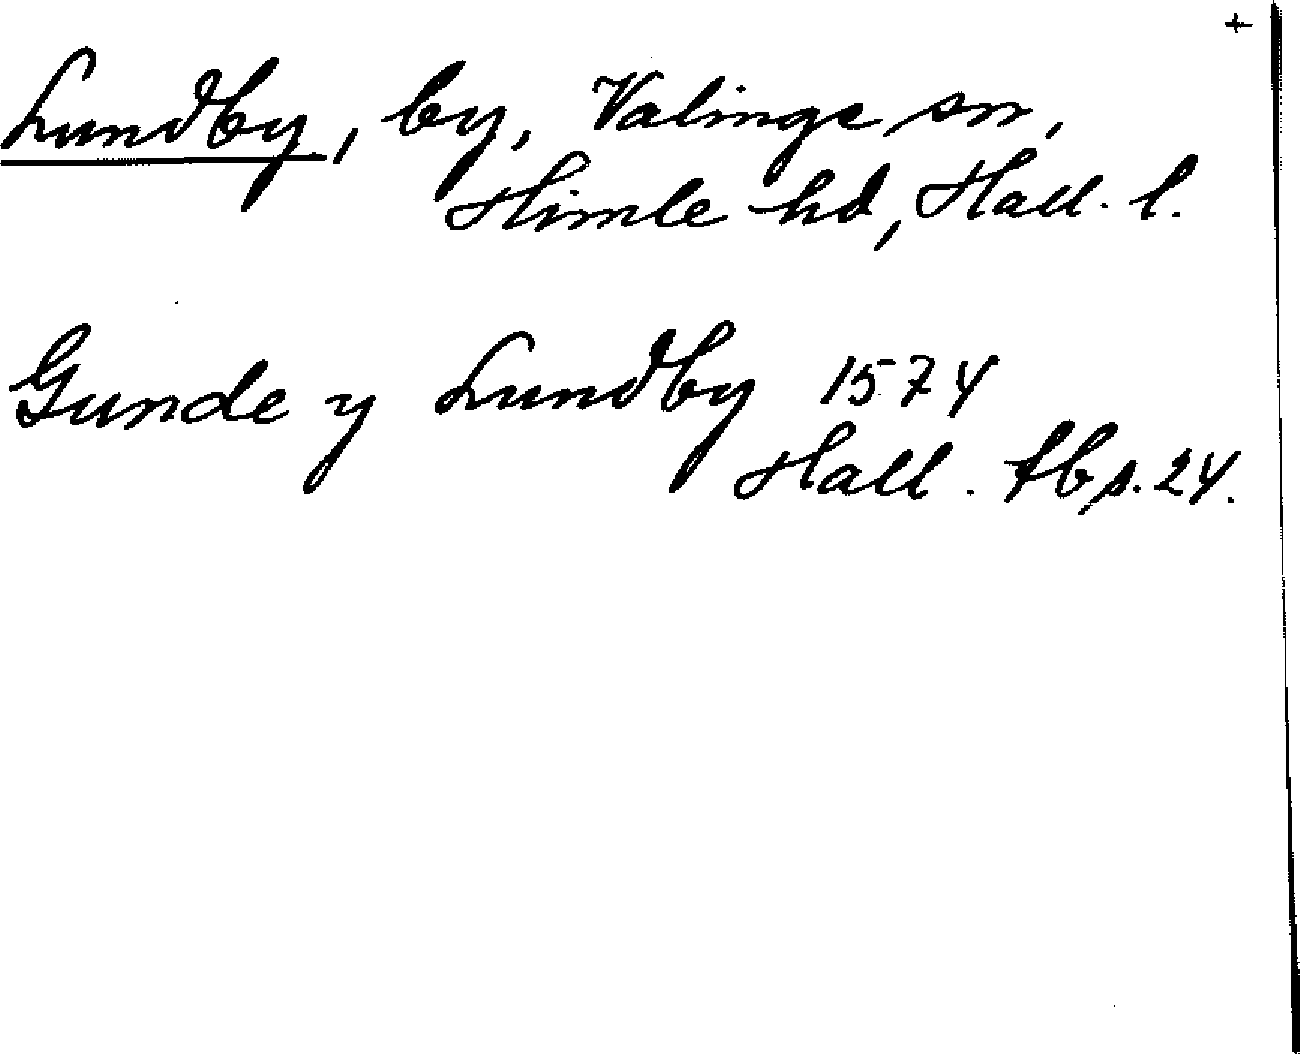 +
Lundby, by, Valinge sn,
Himle hd, Hall. l.
Gunde y Lundby 1574
Hall. tb s. 24.